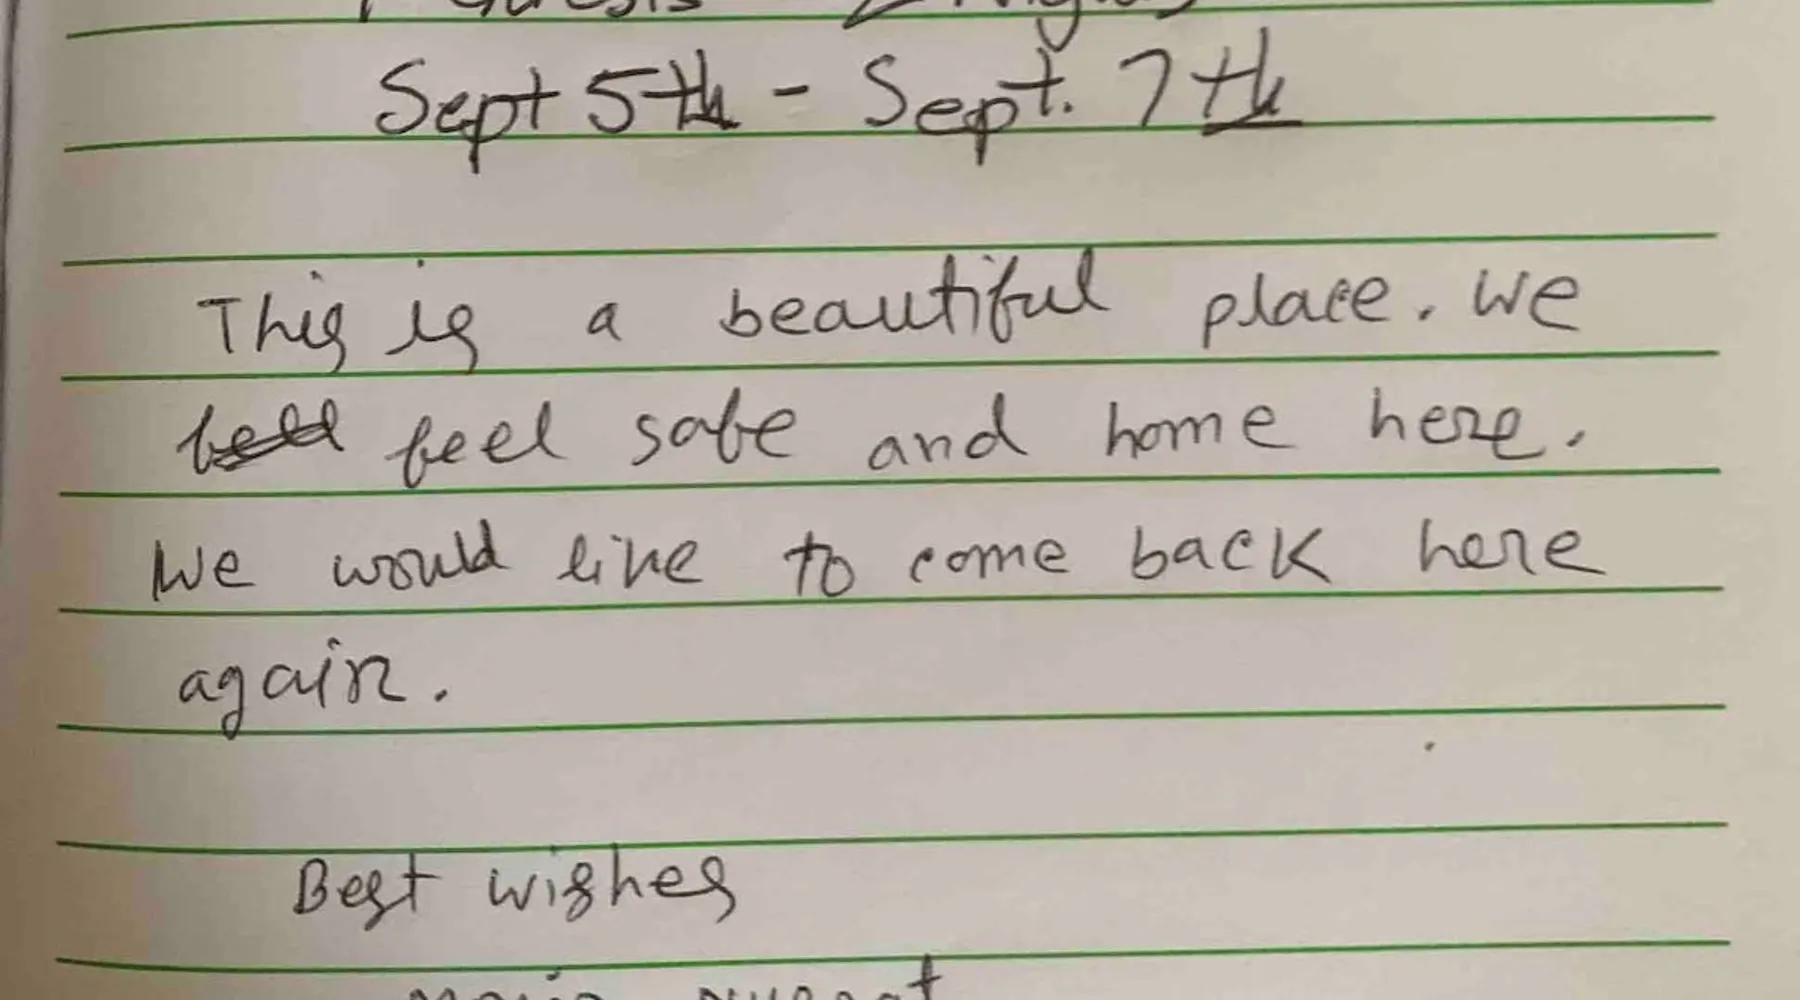 Guests
Sept 5th - Sept. 7th
This is a beautiful place. We
feel safe and home here.
We would like to come back here
again.
Best wishes